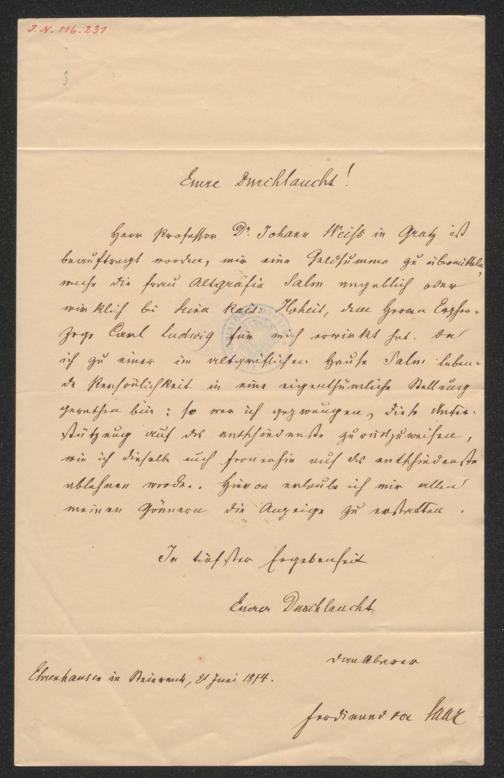 J.N. 116.231
Eure Durchlaucht!
Herr Professor Dr. Johann Weiss in Gratz ist
beauftragt worden, mir eine Geldsumme zu übermitteln,
welche die Frau Altgräfin Salm angeblich oder
wirklich bei Seiner kais: Hoheit, dem Herrn Erzher-
zoge Carl Ludwig für mich erwirkt hat. Da
ich zu einer im altgräflichen Hause Salm leben-
de Persönlichkeit in eine eigenthümliche Stellung
gerathen bin: so war ich gezwungen, diese Unter-
stützung auf das entschiedenste zurückzuweisen,
wie ich dieselbe auch fernerhin auf das entschiedenste
ablehnen werde. Hievon erlaube ich mir allen
meinen Gönnern die Anzeige zu erstatten.
In tiefster Ergebenheit
Eurer Durchlaucht
dankbarer
Ehrenhausen in Steiermark, 21 Juni 1874.
Ferdinand von Saar